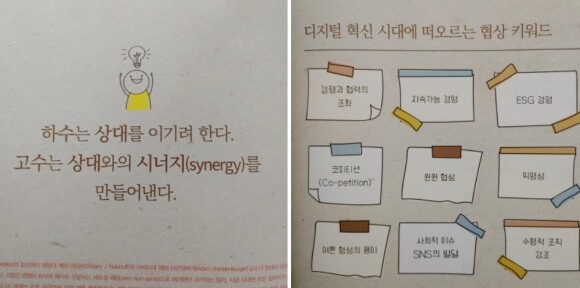 하수는 상대를 이기려 한다.
고수는 상대와의 시너지(synergy)를
만들어낸다.
디지털 혁신 시대에 떠오르는 협상 키워드
경쟁과 협력의
조화
지속가능 경영
ESG 경영
코피티션
(Co-petition)
윈윈 협상
익명성
여론 형성의 용이
사회적 이슈
SNS의 발달
수평적 조직
강조